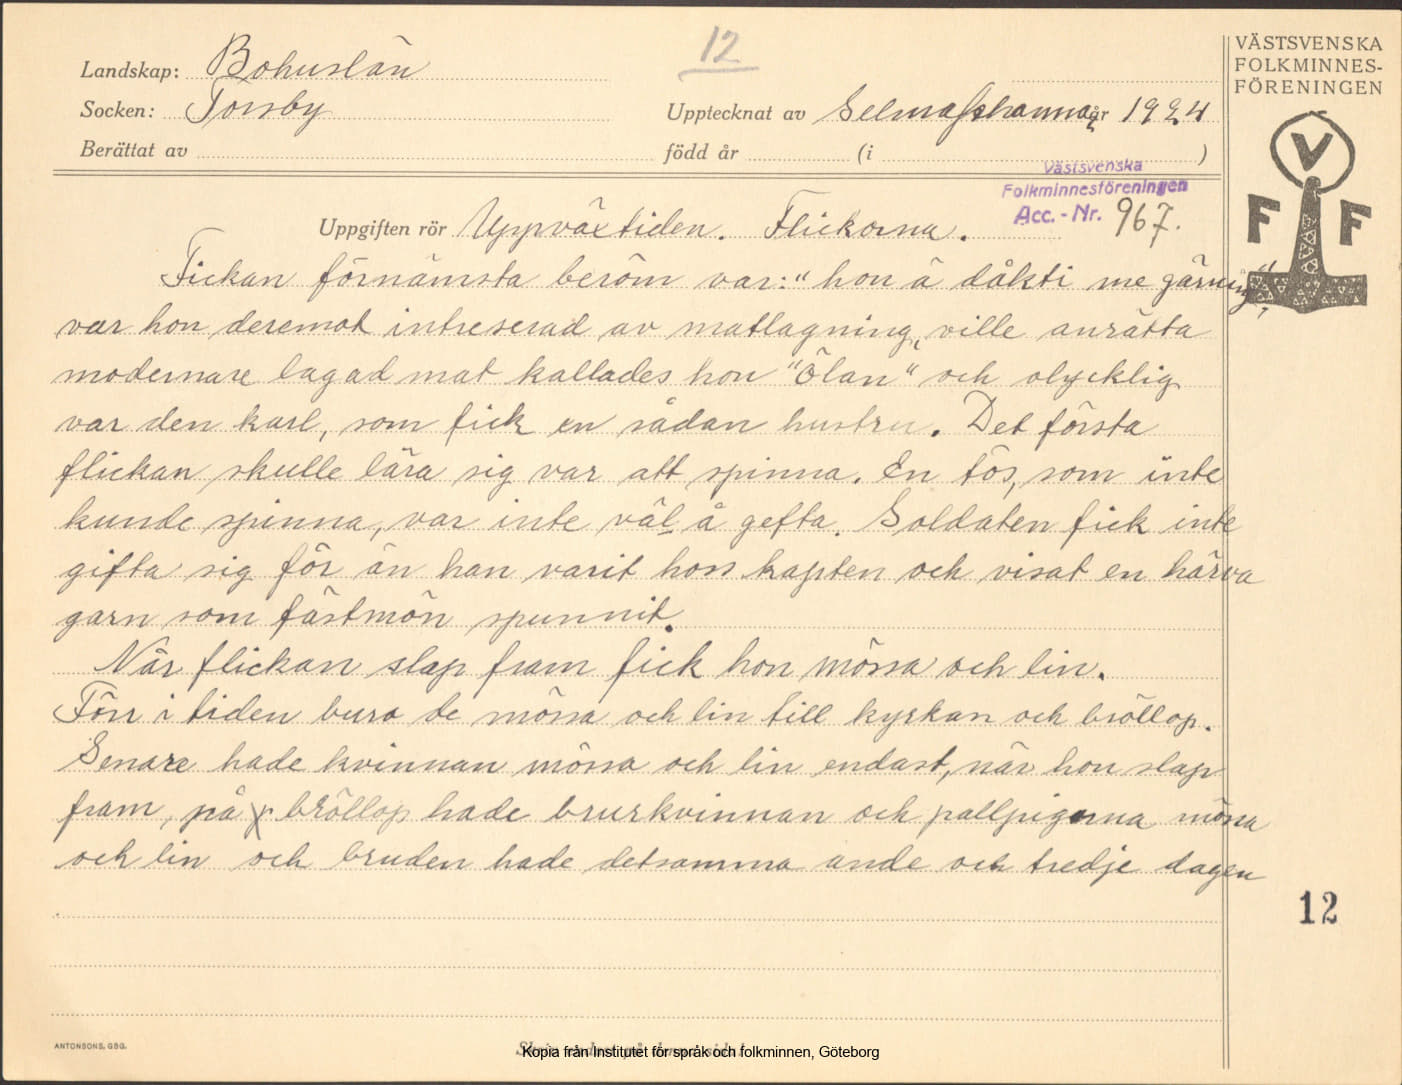 12
VÄSTSVENSKA
FOLKMINNES-
FÖRENINGEN
Landskap: Bohuslän
Socken: Torsby
Upptecknat av Selma Johanna, år 1924
Berättat av född år (i )
Västsvenska
Folkminnesföreningen
Acc.-Nr. 967.
V
F F
Uppgiften rör Uppväxtiden. Flickorna.
Fickan förnämsta beröm var: "hon ä dåkti me gärning",
var hon deremot intreserad av matlagning, ville anrätta
modernare lagad mat kallades hon "Ölan" och olycklig
var den karl, som fick en sådan hustru. Det första
flickan skulle lära sig var att spinna. En tös, som inte
kunde spinna, var inte väl å gefta. Soldaten fick inte
gifta sig för än han varit hoss kapten och visat en härva
garn som fästmön spunnit.
När flickan slap fram fick hon mössa och lin.
Förr i tiden buro de mössa och lin till kyrkan och bröllop.
Senare hade kvinnan mössa och lin endast, när hon slap
fram, på bröllop hade brurkvinnan och pallpigorna mössa
och lin och bruden hade detsamma ande och tredje dagen
12
ANTONSONS, GBG.
Kopia från Institutet för språk och folkminnen, Göteborg